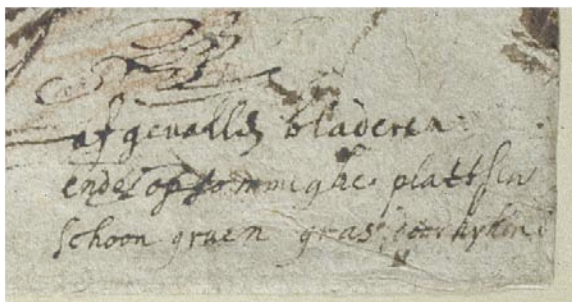 afgevallen bladeren
ende op sommighe plattsen
schoon gruen gras doorkyken